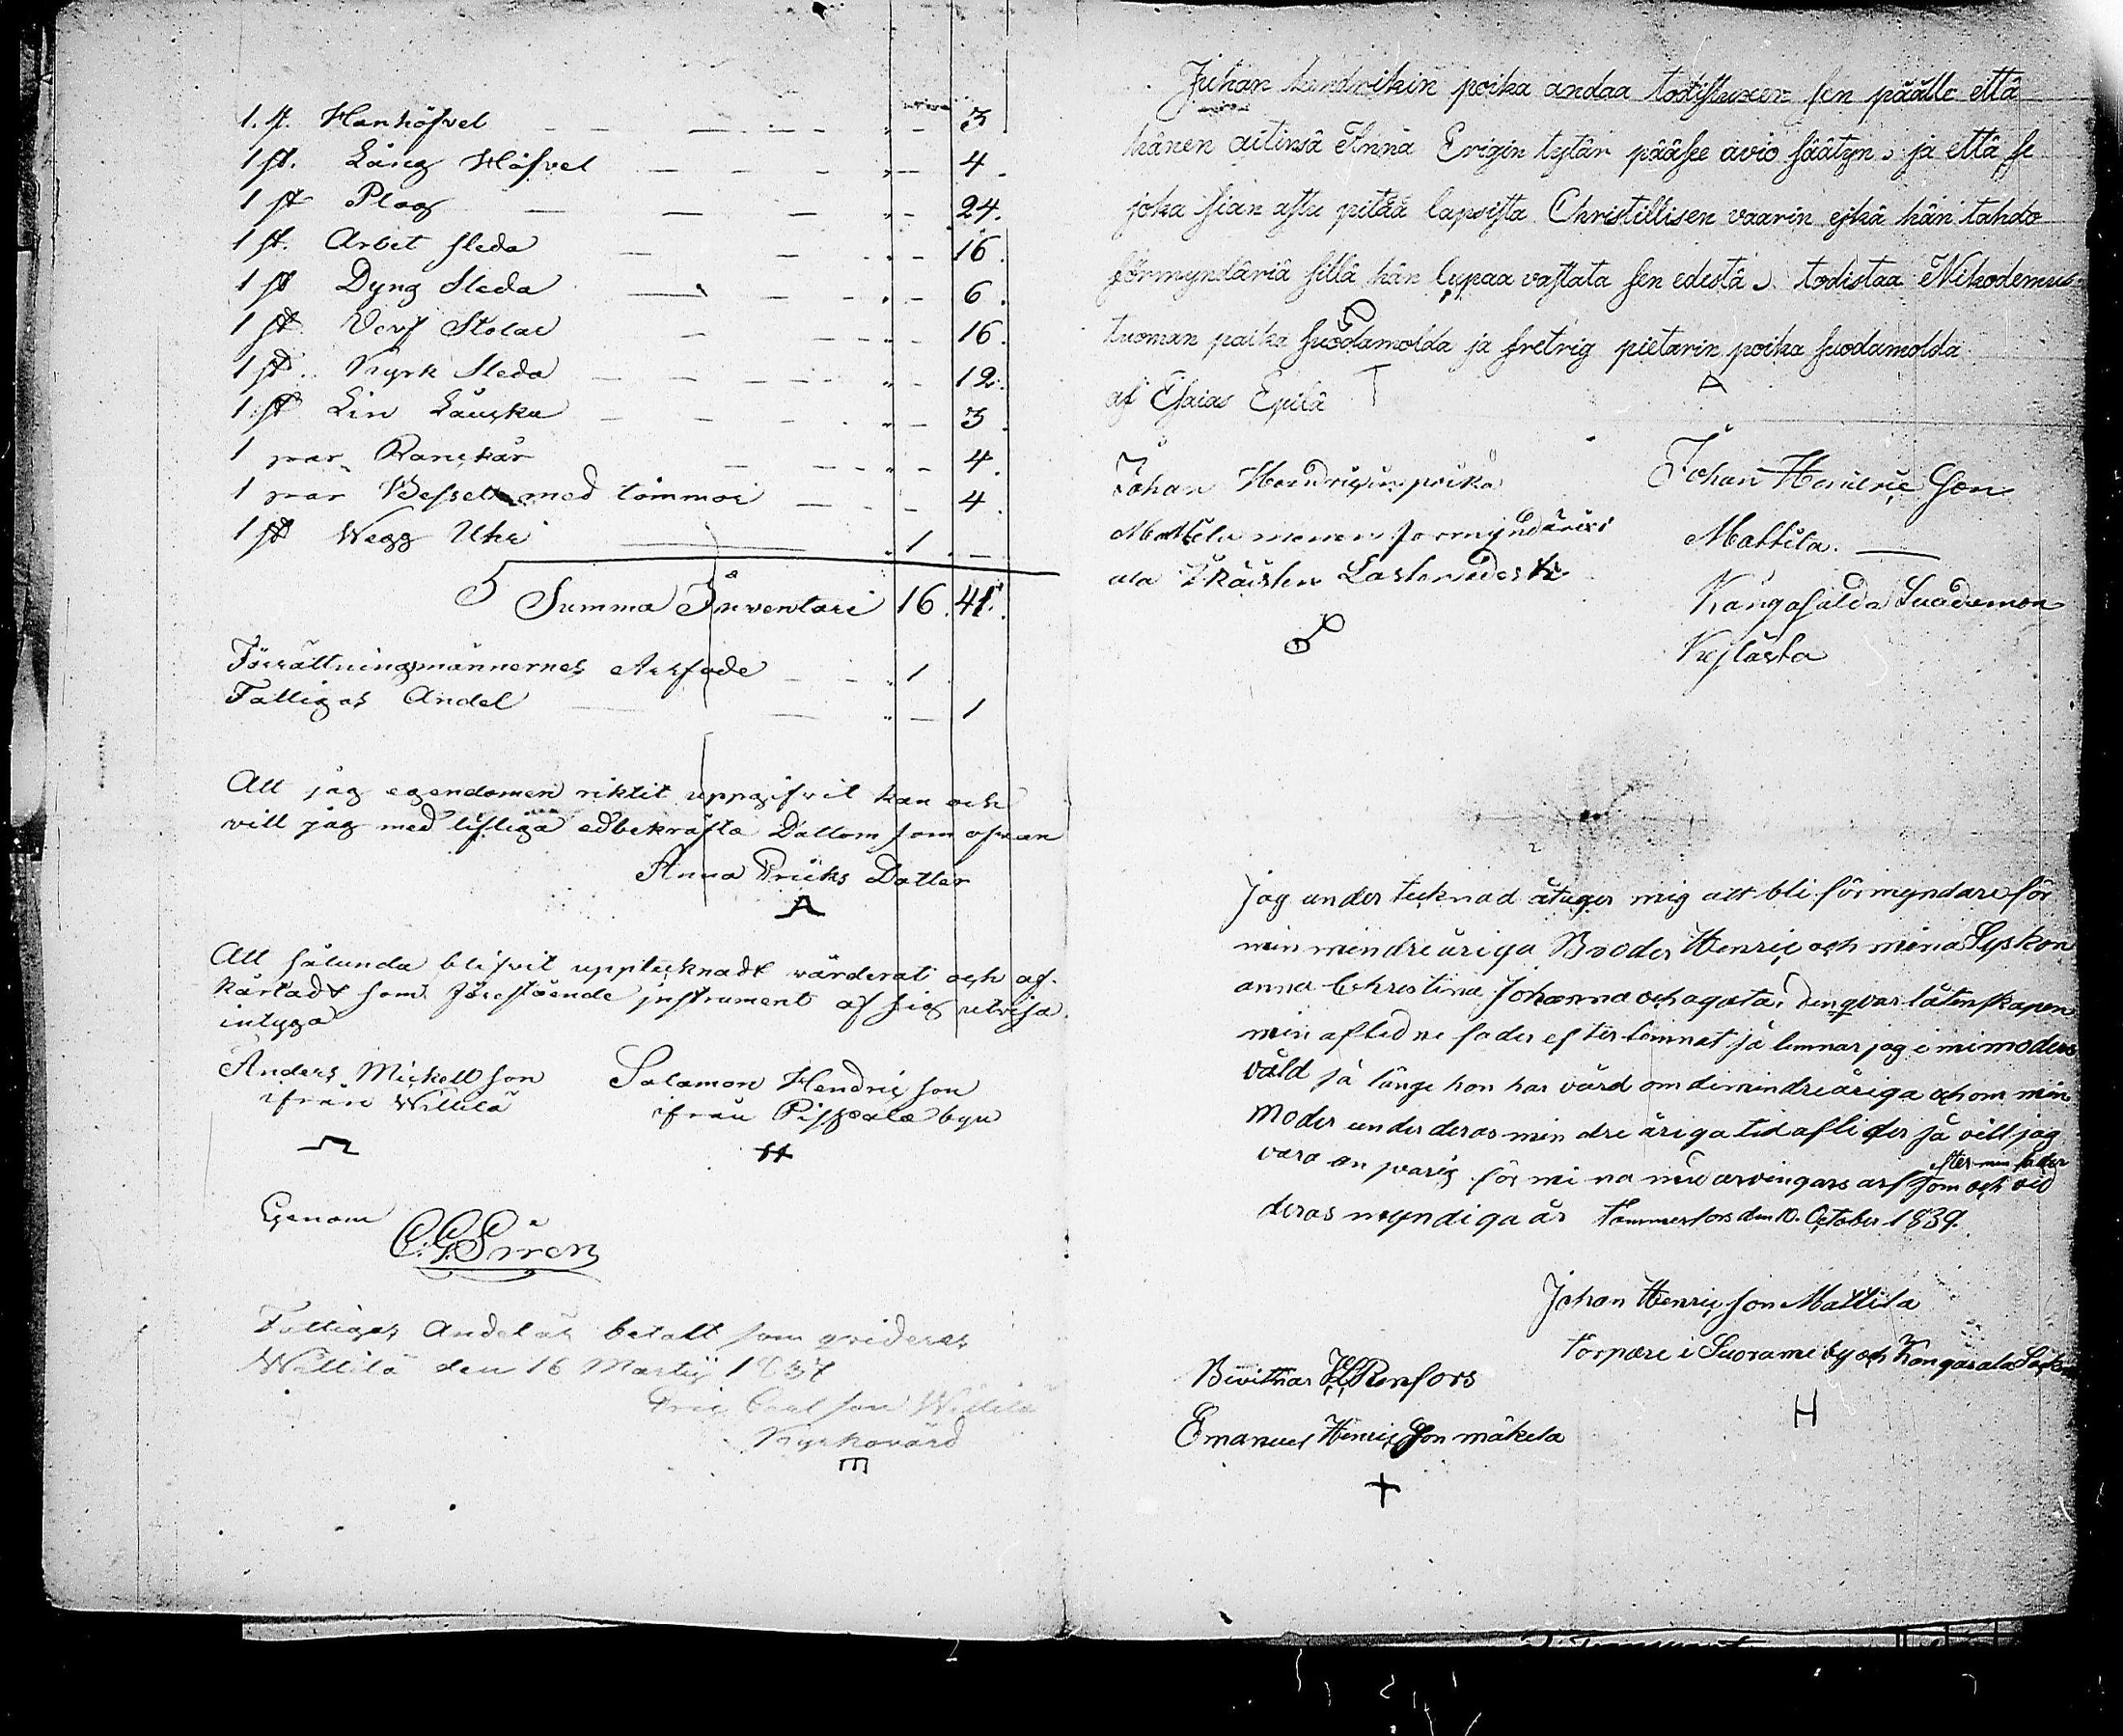 1 st. Hanhöfvel " — 3
1 st. Lång Höfvel " — 4.
1 st Plog " — 24.
1 st. Arbet sleda " — 16.
1 st Dyng Sleda " — 6.
1 st Verf Stolar " — 16.
1 st. Kyrk Sleda " — 12.
1 st Lin Låucka " — 3.
1 par Ranckår " — 4.
1 par Bessell med tömmar — 4.
1 st Wegg Uhr " 1. —
Summa Inventari 16. 41.
Förrättningsmännernes Arfode " 1
Fattigas Andel " — 1
Att jag egendomen riktit uppgifvit kan och
vill jag med lifliga edbekräfta Dattom som ofvan
Anna Eriks Dotter
Att sålunda blifvit upptecknadt värderat och af-
kårtadt som föreståënde instrument af sig utvisa
intyga
Anders Mickellson Salamon Hendricson
ifrån Willilä ifrån Pispala byn
Genom
C. G. Siren
Fattigas Andel är betalt som qvideras
Willilä den 16 Martij 1837
Eric Carlsson Willilä
Kyrkovärd
Juhan hendrikin poika andaa todistuxen sen päälle että
hänen aitinsä Anna Erigin tytär pääsee avio säätyn, ja että se
joka sian astu pitää lapsista Christillisen vaarin eikä hän tahdo
förmyndäriä sillä hän lupaa vastata sen edestä, todistaa Nikodemus
tuoman poika suodamolda ja fretrig pietarin poika suodamolda
af Esaias Epilä
Johan Heindrigin poika
Mattila menen formyndärixi
ala Ikäisten Lasten edestä
Johan Henric Son
Mattila.
Kangasalda Suadamon
Kylästa
Jag under tecknad åtager mig att bli förmyndare för
min mindreåriga Broder Henric och mina Syskon
anna Christina Johanna och agata, den qvar låtenskapen
min aflidne fader efter lemnat så lemnar jag i mi moders
våld så länge hon har vård om de mindreåriga och om min
Moder under deras min dre åriga tid aflider så vill jag
vara an svarig för mi na med arvingars arf efter min fader som och vid
deras myndiga år Tammerfors den 10. October 1839.
Johan Henricson Mattila
Torpare i Suorama by och Kangasala Sockn
Bevittnar Renfors
Emanuel Henricsson mäkelä
H